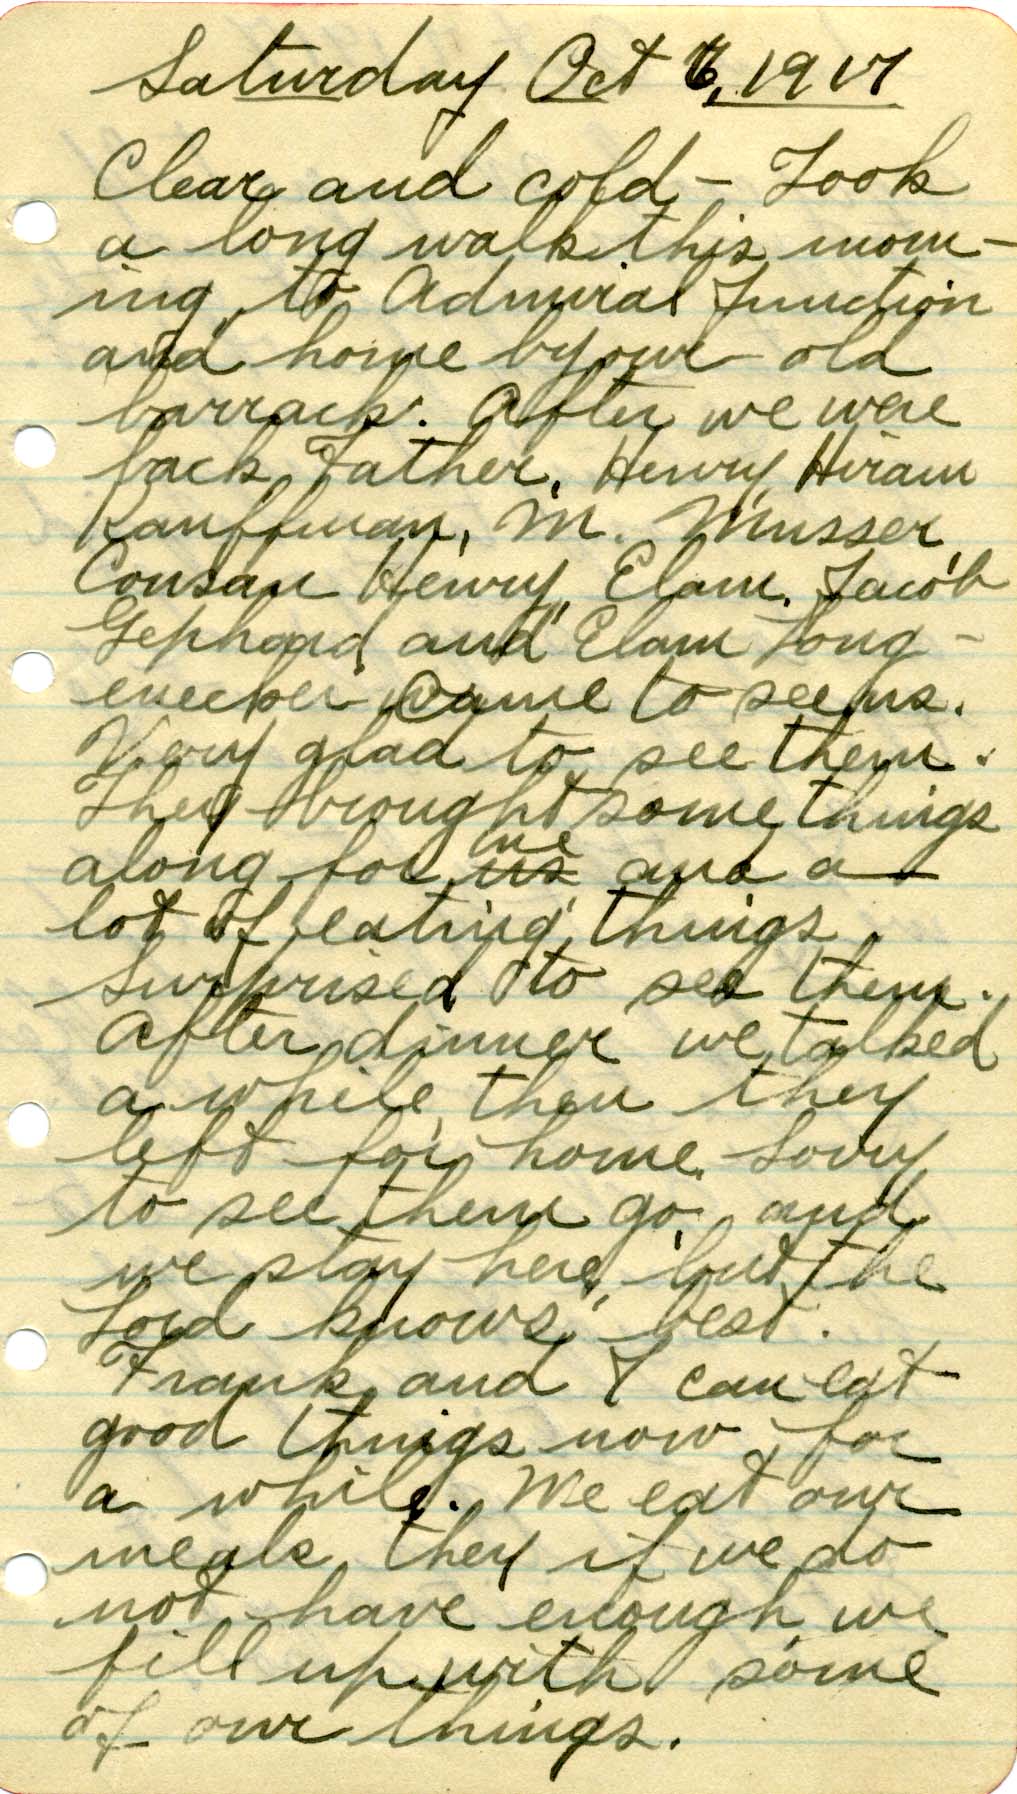 Saturday Oct 6, 1917
Clear and cold - Took
a long walk this morn-
ing, to Admiral Junction
and home by our old
barrack. After we were
back, Father, Henry, Hiram
Kauffman, M. Musser,
Cousan Henry, Elam, Jacob
Gephard, and Elam Long-
enecker came to see us.
Very glad to see them.
They brought some things
along for us me and a
lot of eating things.
Surprised to see them.
After dinner we talked
a while, then they
left for home. Sorry
to see them go, and
we stay here, but, the
Lord knows, best.
Frank and I can eat
good things now, for
a while. We eat our
meals, they if we do
not have enough we
fill up with some
of our things.